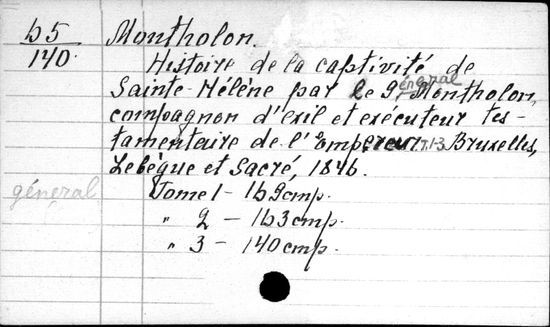 b5
140.
Montholon.
Histoire de la captivité de
Sainte-Hélène par le général Montholon,
compagnon d'exil et exécuteur tes-
tamentaire de l'Empereur. т.1-3 Bruxelles,
Lebègue et Sacré, 1846.
général
Tome 1 - 169 стр.
" 2 - 163 стр.
" 3 - 140 стр.